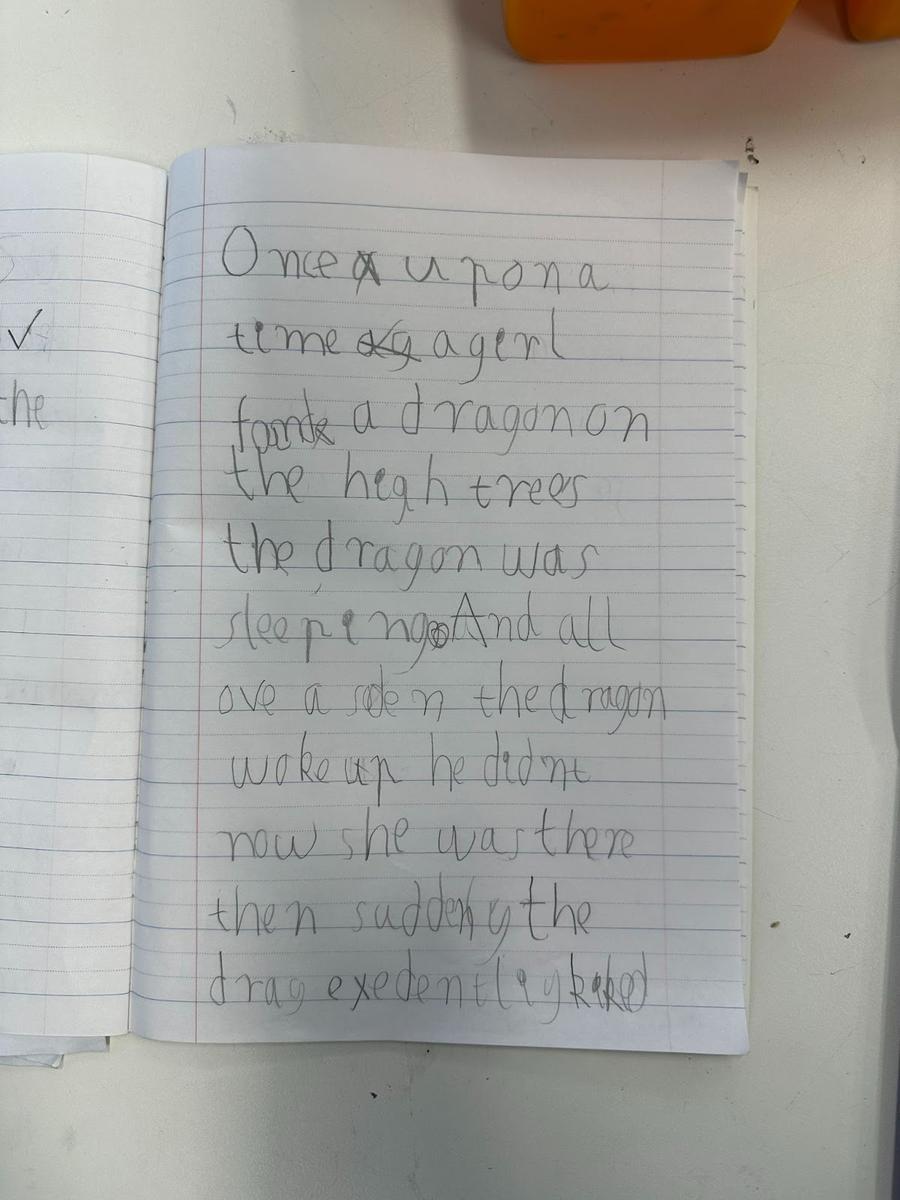 Once upon a
time a gerl
a dragon on
the hegh trees
the dragon was
sleepeng And all
ove a soden the dragon
woke up he didnt
now she was there
then suddenly the
drag exedentley kiked
the